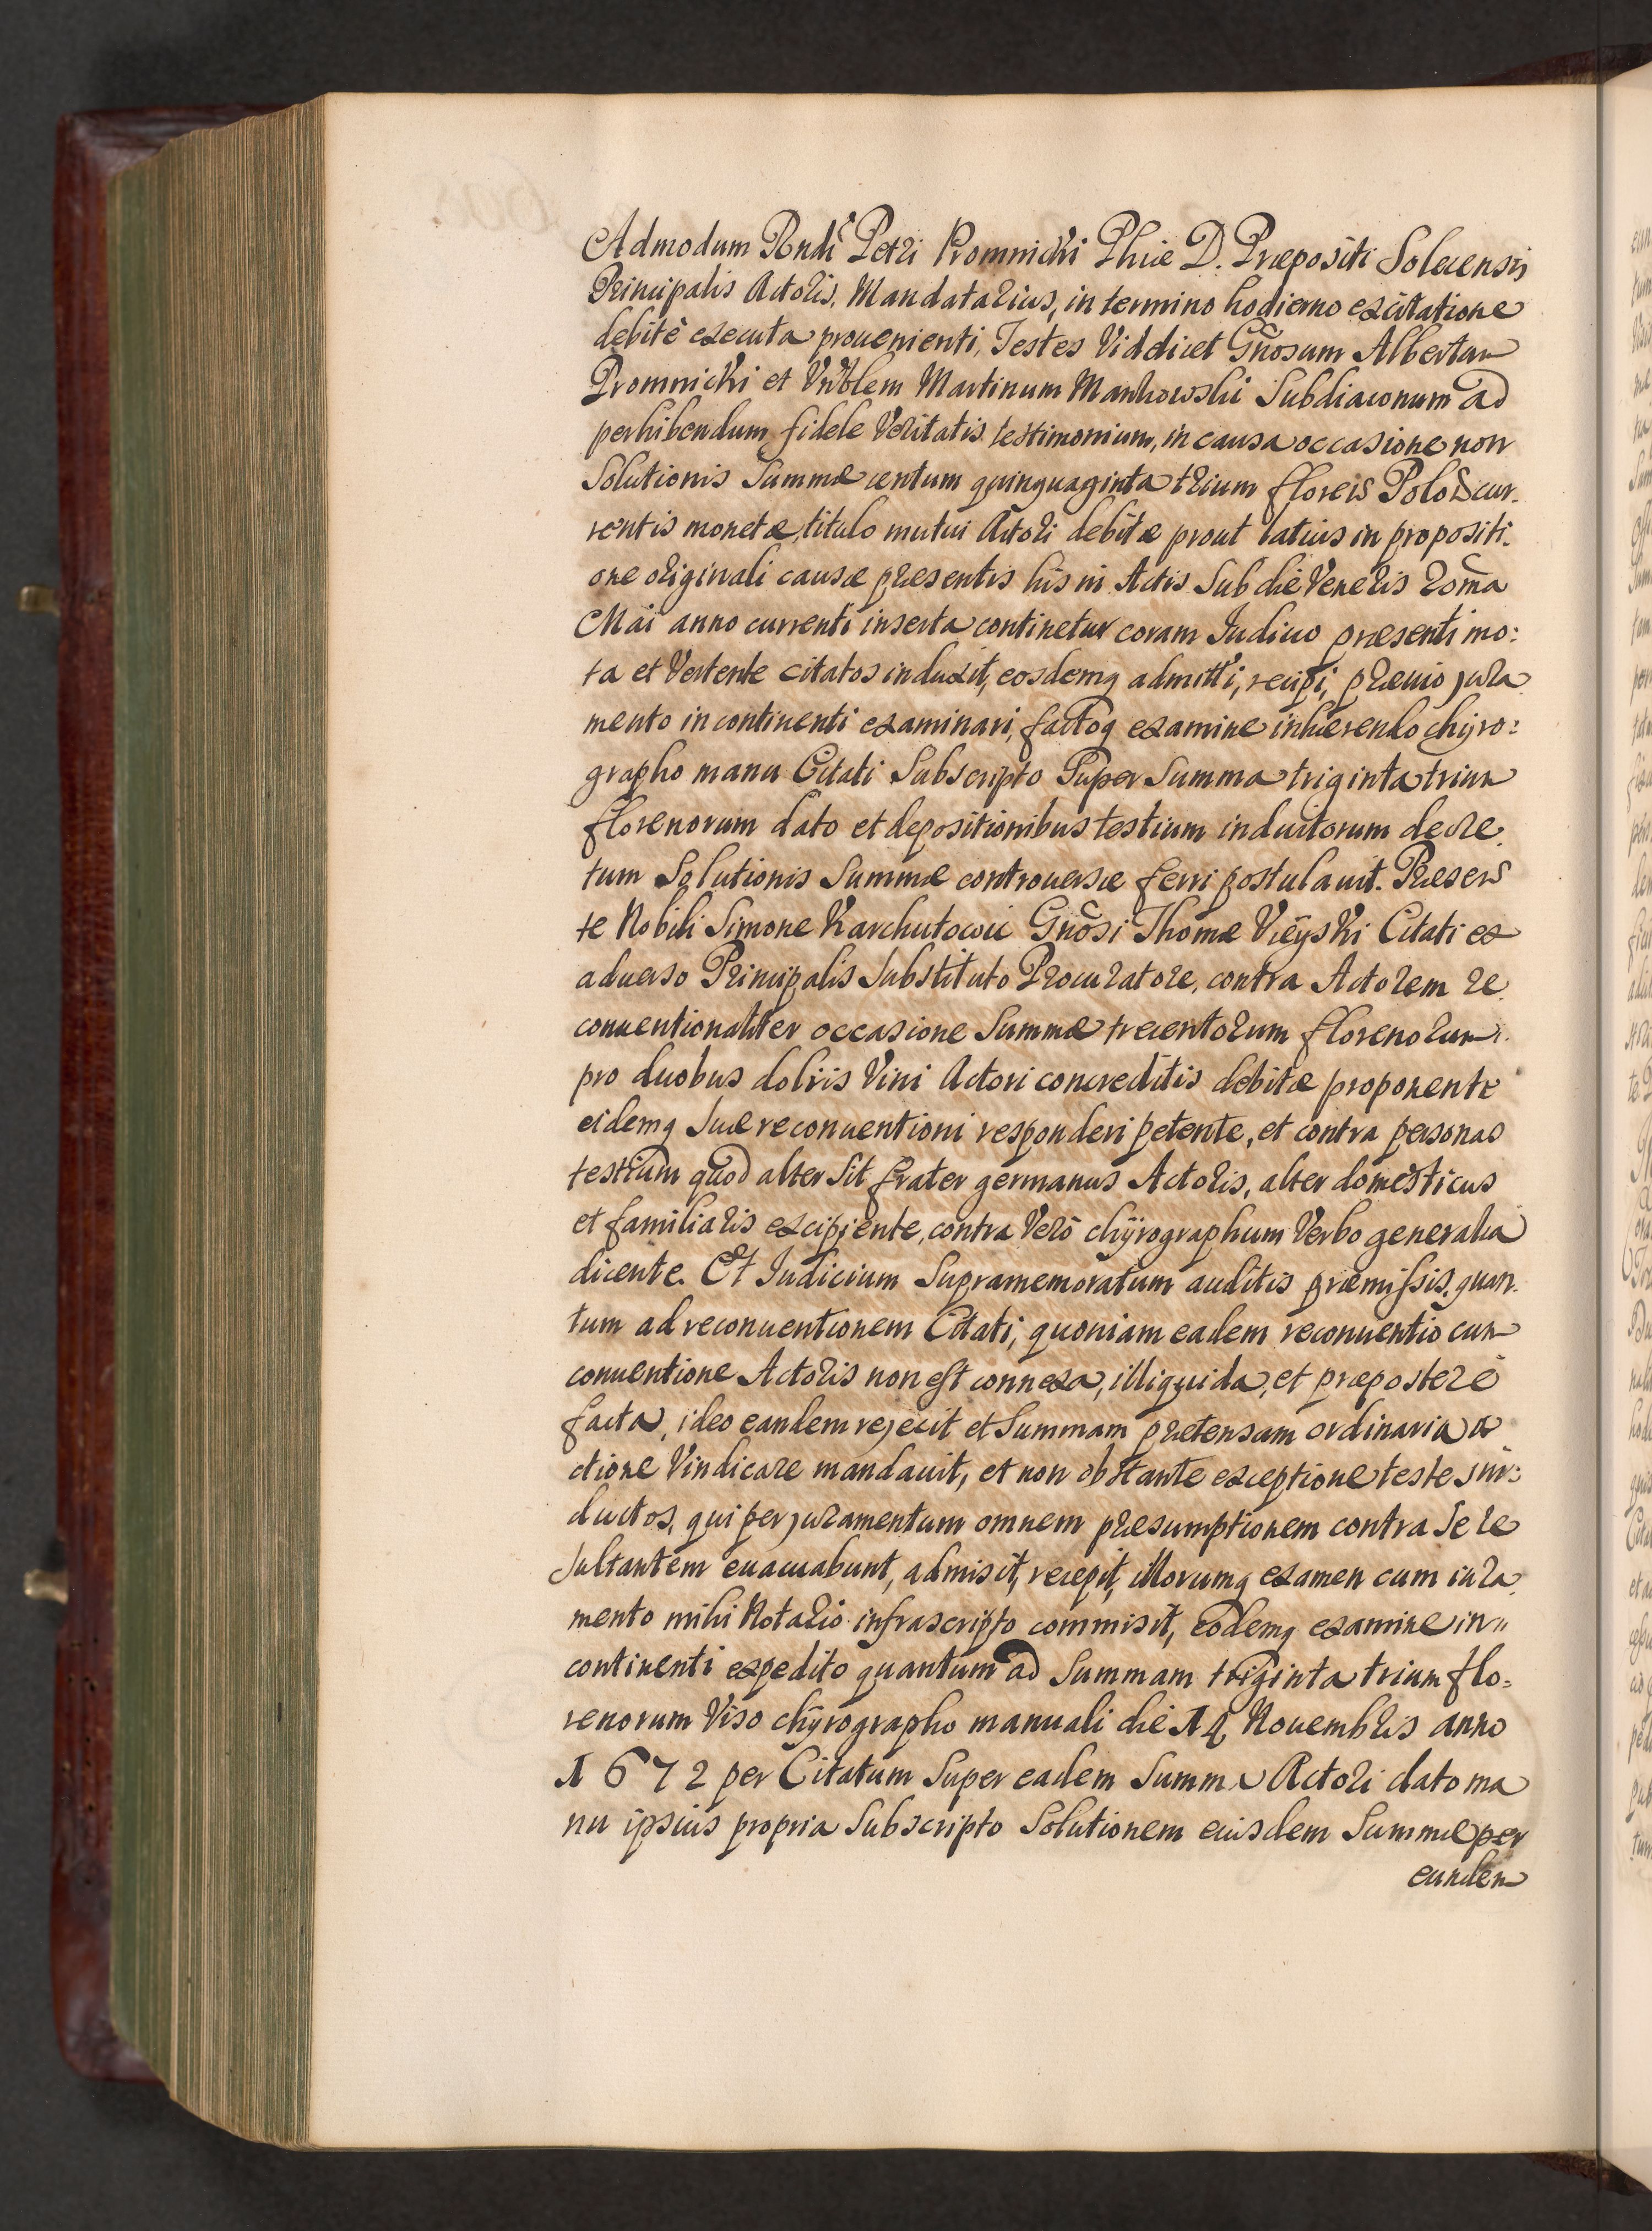 Admodum Rndi Petri Promnicki Phiæ D. Præpositi Solecensis
Principalis Actoris, Mandatarius, in termino hodierno ex citatione
debitè executa prouenienti, Testes Viddicet Gnosum Albertum
Promnicki et Vnblem Martinum Mankowski Subdiaconum ad
perhibendum fidele Veritatis testimonium, in causa occasione non
Solutionis Summæ centum quinquaginta trium floreis Polo cur-
rentis monetæ, titulo mutui Actori debitæ prout latius in propositi-
one originali causæ præsentis his in Actis Sub die Veneris
Maii anno currenti inserta continetur coram Iudicio præsenti mo:
ta et Vertente citatos induxit, eosdemq admitti, recipi, præuio jura
mento in continenti examinari, factoq examine inhærendo chyro:
grapho manu Citati Subscripto Super Summa triginta trium
florenorum dato et depositionibus testium inductorum decre-
tum Solutionis Summæ controuersæ ferri postulauit. Præsen
te Nobili Simone Karchutowic Gnosi Thomæ Vieyski Citati ex
aduerso Principalis Substituto Procuratore, contra Actorem re
conuentionaliter occasione Summæ trecentorum florenorum
pro duobus doliis Vini Actori concreditis debitæ proponente
eidemq Suæ reconuentioni responderi petente, et contra personas
testium quod alter Sit frater germanus Actoris, alter domesticus
et familiaris excipiente, contra Verò chÿrographum Verbo generalia
dicente. Et Iudicium Supramemoratum auditis præmissis, quan-
tum ad reconuentionem Citati, quoniam eadem reconuentio cum
conuentione Actoris non est connexa, illiquida, et præposterè
facta, ideo eandem rejecit et Summam prætensam ordinaria a
ctione Vindicare mandauit, et non obstante exceptione testes in:
ductos, qui per juramentum omnem præsumptionem contra Se re
Sultantem euacuabunt, admisit, recepit, illorumq examen cum iura
mento mihi Notario infrascripto commisit, eodemq examine in"
continenti expedito quantum ad Summam triginta trium flo=
renorum Viso chÿrographo manuali die 14 Nouembris anno
1672 per Citatum Super eadem Summa Actori dato ma
nu ipsius propria Subscripto Solutionem eiusdem Summæ per
eundem